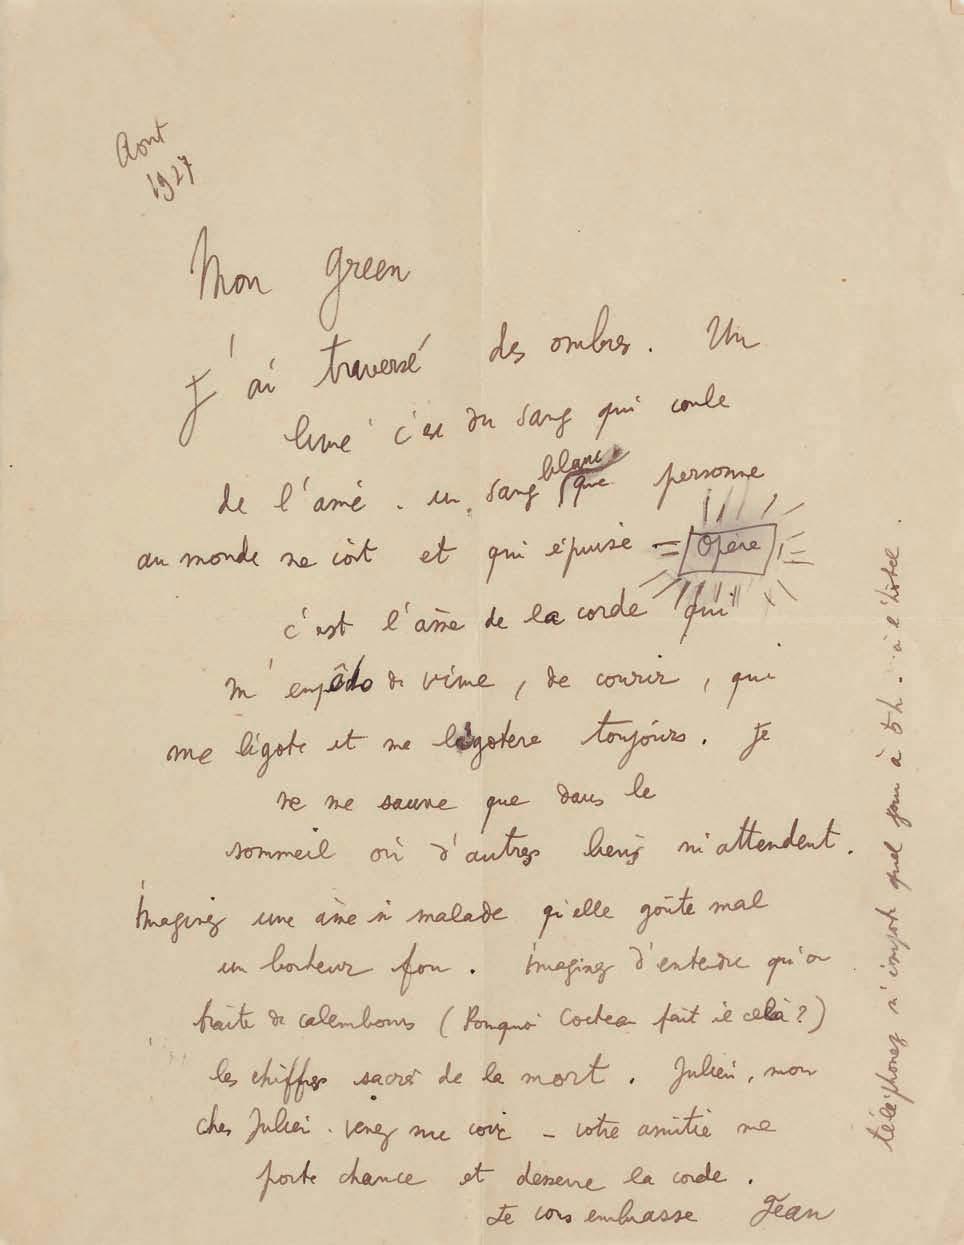 Août
1927
Mon Green
J'ai traversé des ombres. Un
livre c'est du sang qui coule
de l'âme. un sang blanc que personne
au monde ne voit et qui épuise — Opéra
c'est l'âme de la corde qui
m'empêche de vivre, de courir, qui
me ligote et me ligotera toujours. Je
ne me sauve que dans le
sommeil où d'autres liens m'attendent.
Imaginez une âme si malade qu'elle goûte mal
un bonheur fou. Imaginez d'entendre qu'on
traite de calembours (Pourquoi Cocteau fait il cela?)
les chiffres sacrés de la mort. Julien, mon
cher Julien. venez me voir – votre amitié me
porte chance et desserre la corde.
Je vous embrasse Jean
téléphonez n'importe quel jour à 5 h. à l'hôtel.